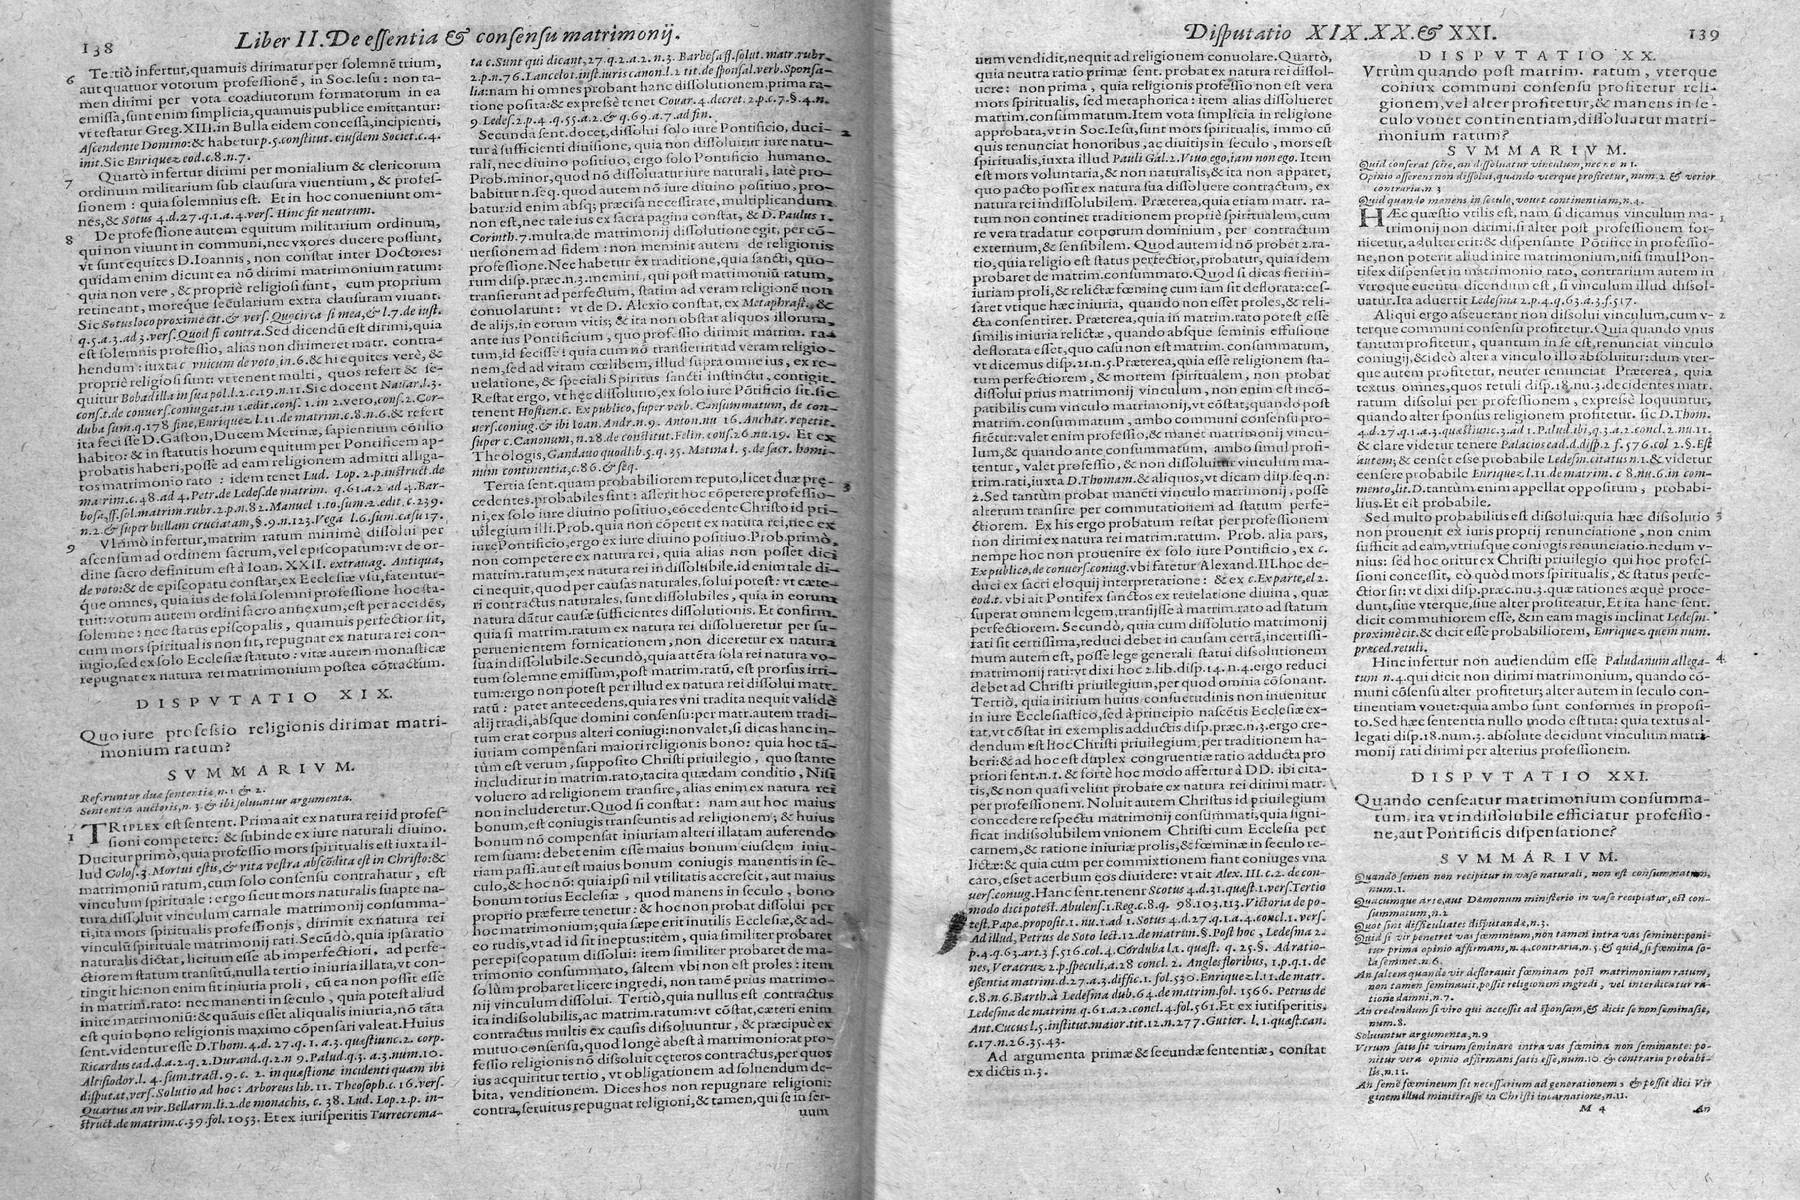 138
Liber II. De essentia & consensu matrimonij.
6 Tertiò infertur, quamuis dirimatur per solemnē trium,
aut quatuor votorum professionē, in Soc. Iesu: non ta-
men dirimi per vota coadiutorum formatorum in ea
emissa, sunt enim simplicia, quamuis publice emittantur:
vt testatur Greg. XIII. in Bulla eidem concessa, incipienti,
Ascendente Domino: & habetur p. 5. constitut. eiusdem Societ. c. 4.
init. Sic Enriquez eod. c. 8. n. 7.
7 Quartò infertur dirimi per monialium & clericorum
ordinum militarium sub clausura viuentium, & profes-
sionem: quia solemnius est. Et in hoc conueniunt om-
nes, & Sotus 4. d. 27. q. 1. a. 4. vers. Hinc fit neutrum.
8 De professione autem equitum militarium ordinum,
qui non viuunt in communi, nec vxores ducere possunt,
vt sunt equites D. Ioannis, non constat inter Doctores:
quidam enim dicunt ea nō dirimi matrimonium ratum:
quia non vere, & propriè religiosi sunt, cum proprium
retineant, moreque secularium extra clausuram viuant.
Sic Sotus loco proximè cit. & vers. Quocirca si mea, & l. 7. de iust.
q. 5. a. 3. ad 3. vers. Quod si contra. Sed dicendū est dirimi, quia
est solemnis professio, alias non dirimeret matr. contra-
hendum: iuxta c. vnicum de voto, in 6. & hi equites verè, &
propriè religiosi sunt: vt tenent multi, quos refert & se-
quitur Bobadilla in sua pol. l. 2. c. 19. n. 11. Sic docent Nauar. l. 3.
cons. t. de conuers. coniugat. in 1. edit. cons. 1. in 2. vero, cons. 2. Cor-
duba sum. q. 178 fine, Enriquez l. 11. de matrim. c. 8. n. 6. & refert
ita fecisse D. Gaston, Ducem Metinæ, sapientium cōsilio
habito: & in statutis horum equitum per Pontificem ap-
probatis haberi, posse ad eam religionem admitti alliga-
tos matrimonio rato: idem tenet Lud. Lop. 2. p. instruct. de
matrim. c. 48. ad 4. Petr. de Ledes. de matrim. q. 61. a. 2 ad 4. Bar-
bosa, ff. sol. matrim. rubr. 2. p. n. 82. Manuel 1. to. sum. 2. edit. c. 239.
n. 2. & super bullam cruciatam, §. 9. n. 123. Vega l. 6. sum. casu 17.
9 Vltimò infertur, matrim ratum minimè dissolui per
ascensum ad ordinem sacrum, vel episcopatum: vt de or-
dine sacro definitum est à Ioan. XXII. extrauag. Antiqua,
de voto: & de episcopatu constat, ex Ecclesiæ vsu, fatentur-
que omnes, quia ius de solâ solemni professione hoc sta-
tuit: votum autem ordini sacro annexum, est per accidēs,
solemne: nec status episcopalis, quamuis perfectior sit,
mors spiritualis non sit, repugnat ex natura rei con-
iugio, sed ex solo Ecclesiæ statuto: vitæ autem monasticæ
repugnat ex natura rei matrimonium postea cōtractum.
DISPVTATIO XIX.
Quo iure professio religionis dirimat matri-
monium ratum?
SVMMARIVM.
Referuntur duæ sententiæ, n. 1 & 2.
Sententia auctoris, n. 3. & ibi soluuntur argumenta.
1 TRIPLEX est sentent. Prima ait ex natura rei id profes-
sioni competere: & subinde ex iure naturali diuino.
Ducitur primò, quia professio mors spiritualis est iuxta il-
lud Colos. 3. Mortui estis, & vita vestra abscōdita est in Christo: &
matrimoniū ratum, cum solo consensu contrahatur, est
vinculum spirituale: ergo sicut mors naturalis suapte na-
tura dissoluit vinculum carnale matrimonij consumma-
ti, ita mors spiritualis professionis, dirimit ex natura rei
vinculū spirituale matrimonij rati. Secūdò, quia ipsa ratio
naturalis dictat, licitum esse ab imperfectiori, ad perfe-
ctiorem statum transitū, nulla tertio iniuria illata, vt con-
tingit hic: non enim fit iniuria proli, cū ea non possit esse
in matrim. rato: nec manenti in seculo, quia potest aliud
inire matrimoniū: & quāuis esset aliqualis iniuria, nō tāta
est quin bono religionis maximo cōpensari valeat. Huius
sent. videntur esse D. Thom. 4. d. 27. q. 1. a. 3. quæstiunc. 2. corp.
Ricardus ead. d. a. 2. q. 2. Durand. q. 2. n 9. Palud. q. 3. a. 3. num. 10.
Altisiodor. l. 4. sum. tract. 9. c. 2. in quæstione incidenti quam ibi
disputat, vers. Solutio ad hoc: Arboreus lib. 11. Theosoph. c. 16. vers.
Quartus an vir. Bellarm. li. 2. de monachis, c. 38. Lud. Lop. 2. p. in-
struct. de matrim. c. 39. fol. 1053. Et ex iurisperitis Turrecrema-
ta c. Sunt qui dicant, 27. q. 2. a. 2. n. 3. Barbosa ff. solut. matr. rubr.
2. p. n. 76. Lancelot. inst. iuris canon. l. 2 tit. de sponsal. verb. Sponsa-
lia: nam hi omnes probant hanc dissolutionem, prima ra-
tione posita: & expressè tenet Couar. 4. decret. 2. p. c. 7. §. 4. n.
9. Ledes. 2. p. 4. q. 55. a. 2. & q. 69. a. 7. ad fin.
Secunda sent. docet, dissolui solo iure Pontificio, duci- 2
tur à sufficienti diuisione, quia non dissoluitur iure natu-
rali, nec diuino positiuo, ergo solo Pontificio humano.
Prob. minor, quod nō dissoluatur iure naturali, latè pro-
babitur n. seq. quod autem nō iure diuino positiuo, pro-
batur: id enim absq; præcisa necessitate, multiplicandum
non est, nec tale ius ex sacra pagina constat, & D. Paulus 1.
Corinth. 7. multa de matrimonij dissolutione egit, per cō-
uersionem ad fidem: non meminit autem de religionis
professione. Nec habetur ex traditione, quia sancti, quo-
rum disp. præc. n. 3. memini, qui post matrimoniū ratum,
transierunt ad perfectum, statim ad veram religionē non
conuolarunt: vt de D. Alexio constat, ex Metaphrast. &
de alijs, in eorum vitis; & ita non obstat aliquos illorum,
ante ius Pontificium, quo professio dirimit matrim. ra-
tum, id fecisse: quia cum nō transierint ad veram religio-
nem, sed ad vitam cœlibem, illud supra omne ius, ex re-
uelatione, & speciali Spiritus sancti instinctu, contigit.
Restat ergo, vt hęc dissolutio, ex solo iure Pōtificio sit. sic
tenent Hostien. c. Ex publico, super verb. Consummatum, de con-
uers. coniug. & ibi Ioan. Andr. n. 9. Anton. nu 16. Anchar. repetit.
super c. Canonum, n. 28. de constitut. Felin. cons. 26. nu. 19. Et ex
Theologis, Gandauo quodlib. 5. q. 35. Metina l. 5. de sacr. homi-
num continentia, c. 86. & seq.
Tertia sent. quam probabiliorem reputo, licet duæ præ- 3
cedentes, probabiles sint: asserit hoc cōpetere professio-
ni, ex solo iure diuino positiuo, cōcedente Christo id pri-
uilegium illi. Prob. quia non cōpetit ex natura rei, nec ex
iure Pontificio, ergo ex iure diuino positiuo. Prob. primò,
non competere ex natura rei, quia alias non posset dici
matrim. ratum, ex natura rei indissolubile. id enim tale di-
ci nequit, quod per causas naturales, solui potest: vt cæte-
ri contractus naturales, sunt dissolubiles, quia in eorum
natura dātur causæ sufficientes dissolutionis. Et confirm.
quia si matrim. ratum ex natura rei dissolueretur per su-
peruenientem fornicationem, non diceretur ex natura
sua indissolubile. Secundò, quia attēta sola rei natura vo-
tum solemne emissum, post matrim. ratū, est prorsus irri-
tum: ergo non potest per illud ex natura rei dissolui matr.
ratū: patet antecedens, quia res vni tradita nequit validè
alij tradi, absque domini consensu: per matr. autem tradi-
tum erat corpus alteri coniugi: non valet, si dicas hanc in-
iuriam compensari maiori religionis bono: quia hoc tā-
tùm est verum, supposito Christi priuilegio, quo stante
includitur in matrim. rato, tacita quædam conditio, Nisi
voluero ad religionem transire, alias enim ex natura rei
non includeretur. Quod si constat: nam aut hoc maius
bonum, est coniugis transeuntis ad religionem; & huius
bonum nō compensat iniuriam alteri illatam auferendo
rem suam: debet enim esse maius bonum eiusdem iniu-
riam passi: aut est maius bonum coniugis manentis in se-
culo, & hoc nō: quia ipsi nil vtilitatis accrescit, aut maius
bonum totius Ecclesiæ, quod manens in seculo, bono
proprio præferre tenetur: & hoc non probat dissolui per
hoc matrimonium; quia sæpe erit inutilis Ecclesiæ, & ad-
eo rudis, vt ad id sit ineptus: item, quia similiter probaret
per episcopatum dissolui: item similiter probaret de ma-
trimonio consummato, saltem vbi non est proles: item
solùm probaret licere ingredi, non tamē prius matrimo-
nij vinculum dissolui. Tertiò, quia nullus est contractus
ita indissolubilis, ac matrim. ratum: vt cōstat, cæteri enim
contractus multis ex causis dissoluuntur, & præcipuè ex
mutuo consensu, quod longè abest à matrimonio: at pro-
fessio religionis nō dissoluit ceteros contractus, per quos
ius acquiritur tertio, vt obligationem ad soluendum de-
bita, venditionem. Dices hos non repugnare religioni:
contra, seruitus repugnat religioni, & tamen, qui se in ser-
uum
Disputatio XIX. XX. & XXI.
139
uum vendidit, nequit ad religionem conuolare. Quartò,
quia neutra ratio primæ sent. probat ex natura rei dissol-
uere: non prima, quia religionis professio non est vera
mors spiritualis, sed metaphorica: item alias dissolueret
matrim. consummatum. Item vota simplicia in religione
approbata, vt in Soc. Iesu, sunt mors spiritualis, immo cū
quis renunciat honoribus, ac diuitijs in seculo, mors est
spiritualis, iuxta illud Pauli Gal. 2. Viuo ego, iam non ego. Item
est mors voluntaria, & non naturalis, & ita non apparet,
quo pacto possit ex natura sua dissoluere contractum, ex
natura rei indissolubilem. Præterea, quia etiam matr. ra-
tum non continet traditionem propriè spiritualem, cum
re vera tradatur corporum dominium, per contractum
externum, & sensibilem. Quod autem id nō probet 2. ra-
tio, quia religio est status perfectior, probatur, quia idem
probaret de matrim. consummato. Quod si dicas fieri in-
iuriam proli, & relictæ fœminę cum iam sit deflorata: ces-
saret vtique hæc iniuria, quando non esset proles, & reli-
cta consentiret. Præterea, quia in matrim. rato potest esse
similis iniuria relictæ, quando absque seminis effusione
deflorata esset, quo casu non est matrim. consummatum,
vt dicemus disp. 21. n. 5. Præterea, quia esse religionem sta-
tum perfectiorem, & mortem spiritualem, non probat
dissolui prius matrimonij vinculum, non enim est incō-
patibilis cum vinculo matrimonij, vt cōstat; quando post
matrim. consummatum, ambo communi consensu pro-
fitētur: valet enim professio, & manet matrimonij vincu-
lum, & quando ante consummatum, ambo simul profi-
tentur, valet professio, & non dissoluitur vinculum ma-
trim. rati, iuxta D. Thomam. & aliquos, vt dicam disp. seq. n.
2. Sed tantùm probat manēti vinculo matrimonij, posse
alterum transire per commutationem ad statum perfe-
ctiorem. Ex his ergo probatum restat per professionem
non dirimi ex natura rei matrim. ratum. Prob. alia pars,
nempe hoc non prouenire ex solo iure Pontificio, ex c.
Ex publico, de conuers. coniug. vbi fatetur Alexand. III. hoc de-
duci ex sacri eloquij interpretatione: & ex c. Ex parte, el 2.
eod. t. vbi ait Pontifex sanctos ex reuelatione diuina, quæ
superat omnem legem, transijsse à matrim. rato ad statum
perfectiorem. Secundò, quia cum dissolutio matrimonij
rati sit certissima, reduci debet in causam certā, incertissi-
mum autem est, posse lege generali statui dissolutionem
matrimonij rati: vt dixi hoc 2. lib. disp. 14. n. 4. ergo reduci
debet ad Christi priuilegium, per quod omnia cōsonant.
Tertiò, quia initium huius consuetudinis non inuenitur
in iure Ecclesiastico, sed à principio nascētis Ecclesiæ ex-
tat, vt cōstat in exemplis adductis disp. præc. n. 3. ergo cre-
dendum est hoc Christi priuilegium, per traditionem ha-
beri: & ad hoc est duplex congruentiæ ratio adducta pro
priori sent. n. 1. & fortè hoc modo affertur à DD. ibi cita-
tis, & non quasi velint probare ex natura rei dirimi matr.
per professionem. Noluit autem Christus id priuilegium
concedere respectu matrimonij consummati, quia signi-
ficat indissolubilem vnionem Christi cum Ecclesia per
carnem, & ratione iniuriæ prolis, & fœminæ in seculo re-
lictæ: & quia cum per commixtionem fiant coniuges vna
caro, esset acerbum eos diuidere: vt ait Alex. III. c. 2. de con-
uers. coniug. Hanc sent. tenent Scotus 4. d. 31. quæst. 1. vers. Tertio
modo dici potest. Abulens. 1. Reg. c. 8. q. 98. 103. 113. Victoria de po-
test. Papæ, proposit. 1. nu. 1. ad 1. Sotus 4. d. 27. q. 1. a. 4. concl. 1. vers.
Ad illud, Petrus de Soto lect. 12. de matrim. §. Post hoc, Ledesma 2.
p. 4. q. 63. art. 3 f. 516. col. 4. Corduba l. 1. quæst. q. 25. §. Ad ratio-
nes, Veracruz 2. p. speculi, a. 28 concl. 2. Angles floribus, 1. p. q. 1. de
essentia matrim. d. 27. a. 3. diffic. 1. fol. 530. Enriquez l. 11. de matr.
c. 8. n. 6. Barth. à Ledesma dub. 64. de matrim. sol. 1566. Petrus de
Ledesma de matrim q. 61. a. 2. concl. 4. fol. 561. Et ex iurisperitis.
Ant. Cucus l. 5. institut. maior. tit. 12. n. 277. Gutier. l. 1. quæst. can.
c. 17. n. 26. 35. 43.
Ad argumenta primæ & secundæ sententiæ, constat
ex dictis n. 3.
DISPVTATIO XX.
Vtrùm quando post matrim. ratum, vterque
coniux communi consensu profitetur reli-
gionem, vel alter profitetur, & manens in se-
culo vouet continentiam, dissoluatur matri-
monium ratum?
SVMMARIVM.
Quid conferat scire, an dissoluatur vinculum, nec ne n 1.
Opinio asserens non dissolui, quando vterque profitetur, num. 2 & verior
contraria, n. 3
Quid quando manens in seculo, vouet continentiam, n. 4.
HÆc quæstio vtilis est, nam si dicamus vinculum ma- 1
trimonij non dirimi, si alter post professionem for-
nicetur, adulter erit: & dispensante Pōtifice in professio-
ne, non poterit aliud inire matrimonium, nisi simul Pon-
tifex dispenset in matrimonio rato, contrarium autem in
vtroque euentu dicendum est, si vinculum illud dissol-
uatur. Ita aduertit Ledesma 2. p. 4. q. 63. a. 3. f. 517.
Aliqui ergo asseuerant non dissolui vinculum, cum v- 2
terque communi consensu profitetur. Quia quando vnus
tantùm profitetur, quantum in se est, renunciat vinculo
coniugij, & ideò alter a vinculo illo absoluitur: dum vter-
que autem profitetur, neuter renunciat Præterea, quia
textus omnes, quos retuli disp. 18. nu. 3. decidentes matr.
ratum dissolui per professionem, expressè loquuntur,
quando alter sponsus religionem profitetur. sic D. Thom.
4. d. 27. q. 1. a. 3. quæstiunc. 3. ad 1. Palud. ibi, q. 3. a. 2. concl. 2. nu. 11.
& clare videtur tenere Palacios ead. d. disp. 2 f. 576. col 2. §. Est
autem; & censet esse probabile Ledesm. citatus n. 1. & videtur
censere probabile Enriquez l. 11. de matrim. c 8. nu. 6. in com-
mento, lit. D. tantùm enim appellat oppositum, probabi-
lius. Et est probabile.
Sed multo probabilius est dissolui: quia hæc dissolutio 3
non prouenit ex iuris proprij renunciatione, non enim
sufficit ad eam, vtriusque coniugis renunciatio. nedum v-
nius: sed hoc oritur ex Christi priuilegio qui hoc profes-
sioni concessit, eò quòd mors spiritualis, & status perfe-
ctior sit: vt dixi disp. præc. nu. 3. quæ rationes æquè proce-
dunt, siue vterque, siue alter profiteatur. Et ita hanc sent.
dicit communiorem esse, & in eam magis inclinat Ledesm.
proximè cit. & dicit esse probabiliorem, Enriquez quem num.
præced. retuli.
Hinc infertur non audiendum esse Paludanum allega- 4
tum n. 4. qui dicit non dirimi matrimonium, quando cō-
muni cōsensu alter profitetur; alter autem in seculo con-
tinentiam vouet: quia ambo sunt conformes in proposi-
to. Sed hæc sententia nullo modo est tuta: quia textus al-
legati disp. 18. num. 3. absolute decidunt vinculum matri-
monij rati dirimi per alterius professionem.
DISPVTATIO XXI.
Quando censeatur matrimonium consumma-
tum, ita vt indissolubile efficiatur professio-
ne, aut Pontificis dispensatione?
SVMMARIVM.
Quando semen non recipitur in vase naturali, non est consummatum,
num. 1.
Quacumque arte, aut Dæmonum ministerio in vase recipiatur, est con-
summatum, n. 2
Quot sint difficultates disputandæ, n. 3.
Quid si vir penetret vas fœmineum, non tamen intra vas seminet: poni-
tur prima opinio affirmans, n. 4. contraria, n. 5. & quid, si fœmina so-
la seminet. n. 6.
An saltem quando vir deflorauit fœminam post matrimonium ratum,
non tamen seminauit, possit religionem ingredi, vel interdicatur ra-
tione damni, n. 7.
An credendum si viro qui accessit ad sponsam, & dicit se non seminasse,
num. 8.
Soluuntur argumenta, n. 9
Vtrum satis sit virum seminare intra vas fœmina non seminante: po-
nitur vera opinio affirmans satis esse, num. 10. & contraria probabi-
lis, n. 11.
An semē fœmineum sit necessarium ad generationem, & possit dici Vir
ginem illud ministrasse in Christi incarnatione, n. 11.
M 4
An